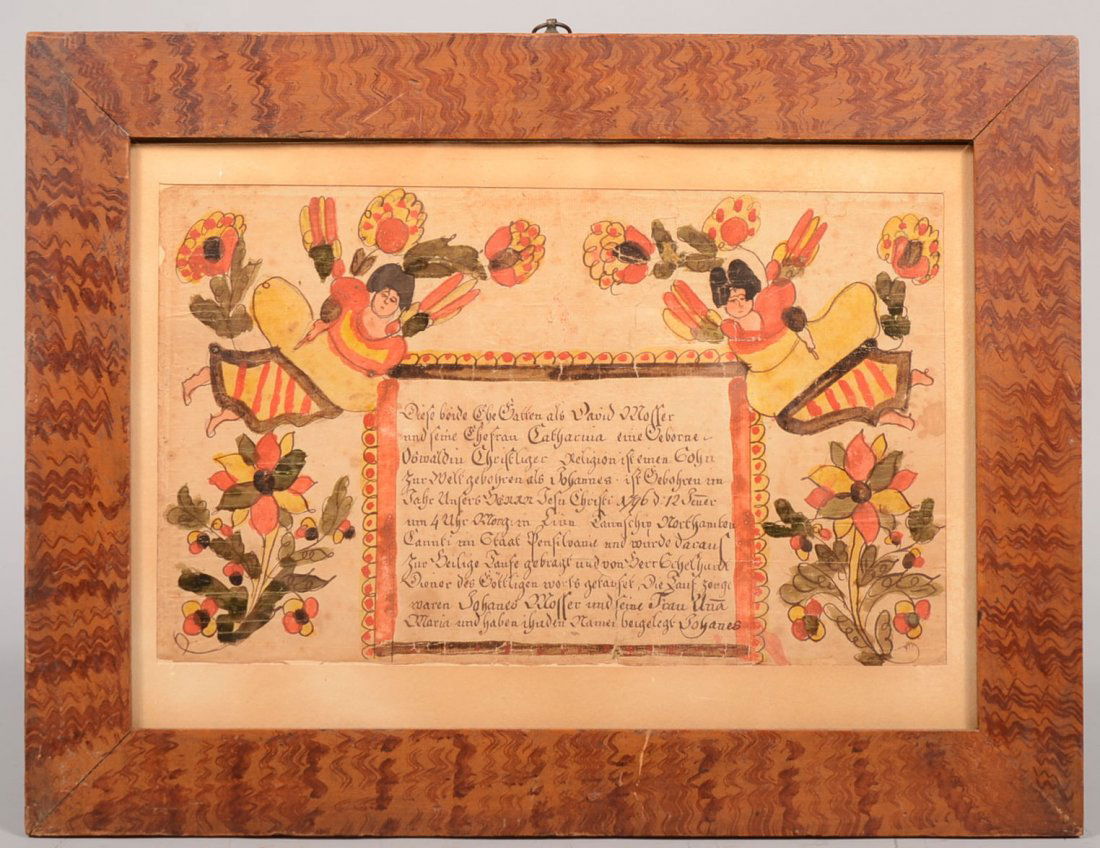 Diese beide Ehe Gatten als David Mosser
und seine Ehefrau Catharina eine Geborne
Oswaldin Christliger Religion ist einen Sohn
Zur Welt gebohren als Johannes. ist Gebohren im
Jahr Unsers HERRN Jesu Christi 1796 d. 12
um 4 Uhr Morg: in Linn Taunschip Northamton
Caunti im Staat Pensilvani und wurde darauf
Zur Heilige Taufe gebragt und von Herr
Diener des Göttligen worts getaufet, Die Tauf zeuge
waren Johanes Mosser und seine Frau Anna
Maria und haben ihm den Namen beigelegt Johanes